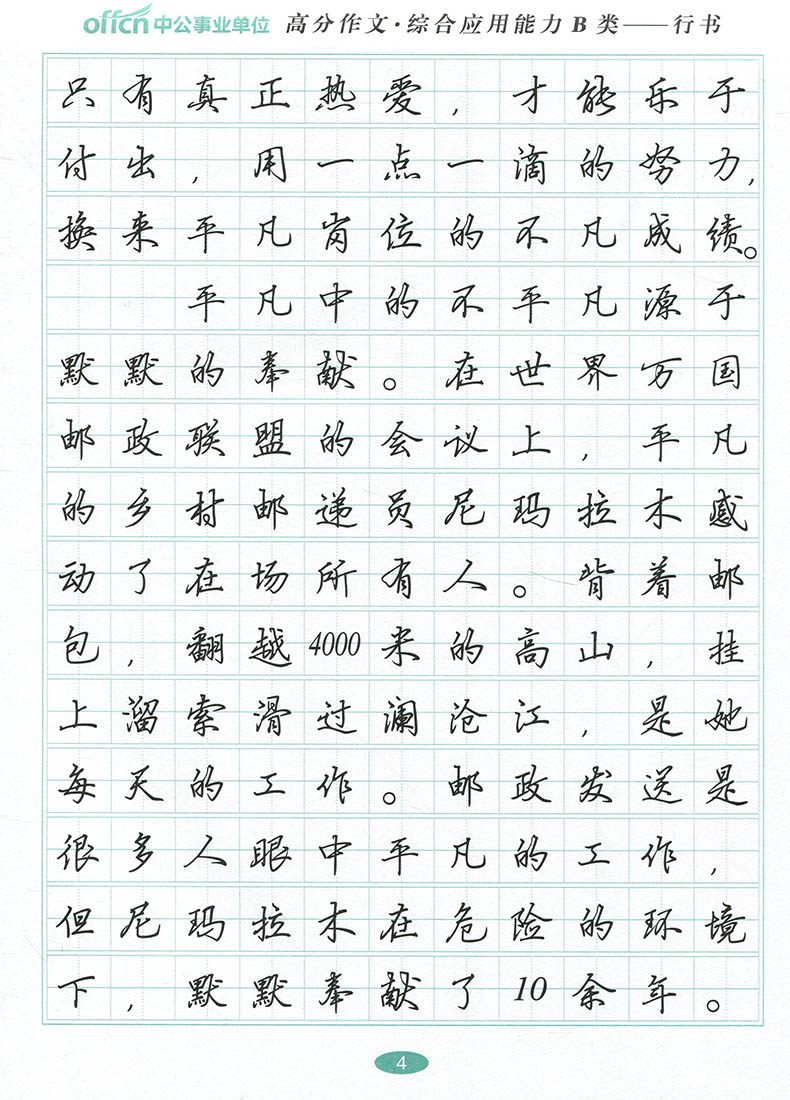 offcn中公事业单位 高分作文·综合应用能力B类——行书
只有真正热爱，才能乐于
付出，用一点一滴的努力，
换来平凡岗位的不凡成绩。
平凡中的不平凡源于
默默的奉献。在世界万国
邮政联盟的会议上，平凡
的乡村邮递员尼玛拉木感
动了在场所有人。背着邮
包，翻越4000米的高山，挂
上溜索滑过澜沧江，是她
每天的工作。邮政发送是
很多人眼中平凡的工作，
但尼玛拉木在危险的环境
下，默默奉献了10余年。
4